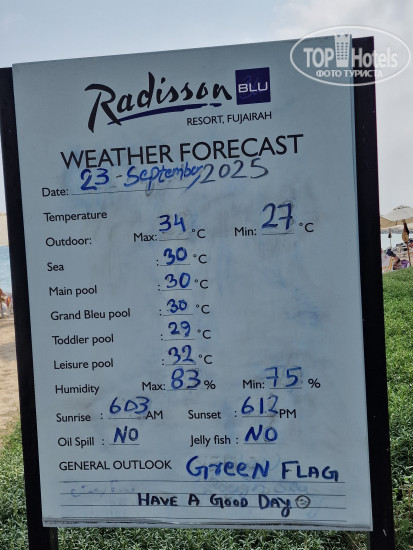 TOPHotels
ФОТО ТУРИСТА
Radisson BLU
RESORT, FUJAIRAH
WEATHER FORECAST
Date: 23 - September 2025
Temperature
Outdoor: Max: 34 °C Min: 27 °C
Sea 30 °C
Main pool 30 °C
Grand Bleu pool : 30 °C
Toddler pool : 29 °C
Leisure pool : 32 °C
Humidity Max: 83 % Min: 75 %
Sunrise : 603 AM Sunset : 613 PM
Oil Spill : NO Jelly fish : NO
GENERAL OUTLOOK GreeN FLAG
HAVE A GOOD DAY☺